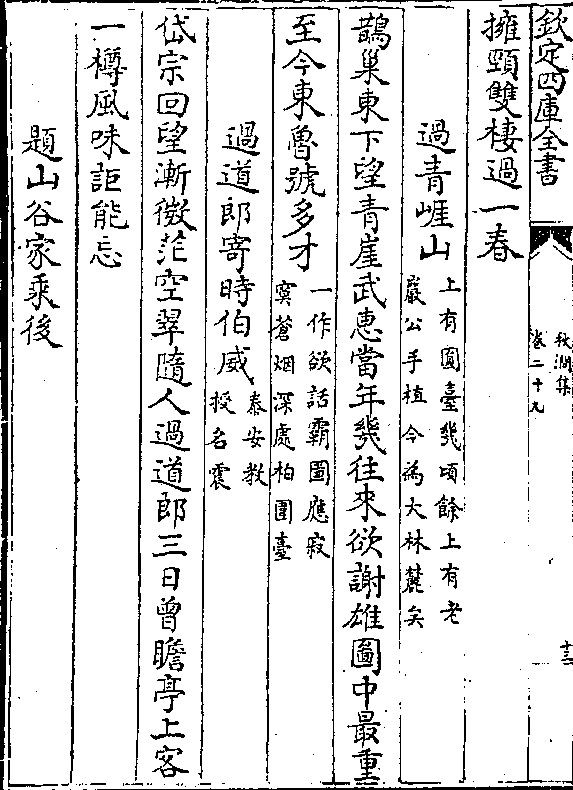 欽定四庫全書
秋澗集
卷二十九
十三
擁頸雙棲過一春
過青崖山
上有圓臺幾頃餘上有老
嚴公手植今為大林麓矣
鵲巢東下望青崖武惠當年幾往來欲謝雄圖中最重
至今東魯號多才
一作欲話霸圖應寂
寞蒼烟深處柏圍臺
過道郎寄時伯威
泰安教
授名震
岱宗回望漸微茫空翠隨人過道郎三日曾瞻亭上客
一樽風味詎能忘
題山谷家乘後